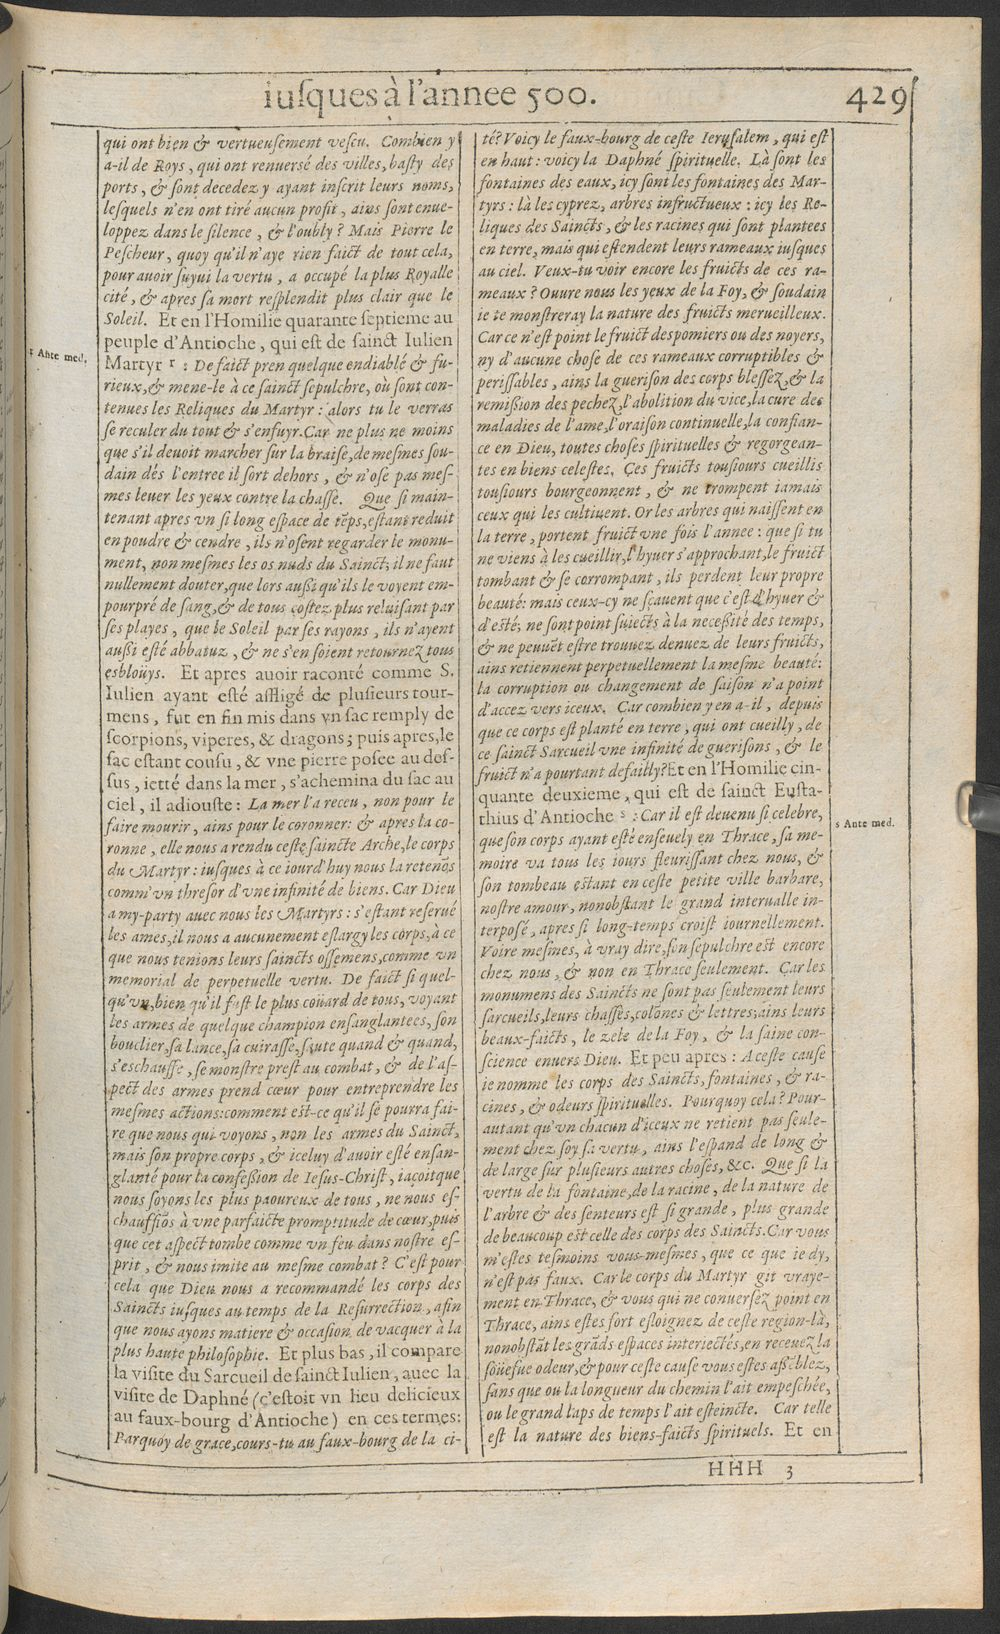 iuſques à l'annee 500. 429
qui ont bien & vertueuſement veſcu. Combien y
a-il de Roys, qui ont renuersé des villes, baſty des
ports, & ſont decedez y ayant inſcrit leurs noms,
leſquels n'en ont tiré aucun profit, ains ſont enue-
loppez dans le ſilence, & l'oubly? Mais Pierre le
Peſcheur, quoy qu'il n'aye rien faict de tout cela,
pour auoir ſuyui la vertu, a occupé la plus Royalle
cité, & apres ſa mort reſplendit plus clair que le
Soleil. Et en l'Homilie quarante ſeptieme au
peuple d'Antioche, qui eſt de ſainct Iulien
r Ante med.
Martyr r : De faict pren quelque endiablé & fu-
rieux,& mene-le à ce ſainct ſepulchre, où ſont con-
tenues les Reliques du Martyr : alors tu le verras
ſe reculer du tout & s'enfuyr.Car ne plus ne moins
que s'il deuoit marcher ſur la braiſe,de meſmes ſou-
dain dés l'entree il ſort dehors, & n'oſe pas meſ-
mes leuer les yeux contre la chaſſe. Que ſi main-
tenant apres vn ſi long eſpace de tẽps,eſtans reduit
en poudre & cendre, ils n'oſent regarder le monu-
ment, non meſmes les os nuds du Sainct; il ne faut
nullement douter,que lors auſſi qu'ils le voyent em-
pourpré de ſang,& de tous coſtez plus reluiſant par
ſes playes, que le Soleil par ſes rayons, ils n'ayent
auſſi eſté abbatuz, & ne s'en ſoient retournez tous
eſblouys. Et apres auoir raconté comme S.
Iulien ayant eſté affligé de pluſieurs tour-
mens, fut en fin mis dans vn ſac remply de
ſcorpions, viperes, & dragons; puis apres,le
ſac eſtant couſu, & vne pierre poſee au deſ-
ſus, ietté dans la mer, s'achemina du ſac au
ciel, il adiouſte : La mer l'a receu, non pour le
faire mourir, ains pour le coronner: & apres la co-
ronne, elle nous a rendu ceſte ſaincte Arche,le corps
du Martyr : iuſques à ce iourd'huy nous la retenõs
comm'vn threſor d'vne infinité de biens. Car Dieu
a my-party auec nous les Martyrs : s'eſtant reſerué
les ames,il nous a aucunement eſlargy les corps,à ce
que nous tenions leurs ſaincts oſſemens,comme vn
memorial de perpetuelle vertu. De faict ſi quel-
qu'vn,bien qu'il fuſt le plus coüard de tous, voyant
les armes de quelque champion enſanglantees, ſon
bouclier,ſa lance,ſa cuiraſſe,ſaute quand & quand,
s'eſchauffe, ſe monſtre preſt au combat, & de l'aſ-
pect des armes prend cœur pour entreprendre les
meſmes actions:comment eſt-ce qu'il ſe pourra fai-
re que nous qui voyons, non les armes du Sainct,
mais ſon propre corps, & iceluy d'auoir eſté enſan-
glanté pour la confeſſion de Ieſus-Chriſt, iaçoit que
nous ſoyons les plus paoureux de tous, ne nous eſ-
chauffiõs à vne parfaicte promptitude de cœur,puis
que cet aſpect tombe comme vn feu dans noſtre eſ-
prit, & nous imite au meſme combat? C'eſt pour
cela que Dieu nous a recommandé les corps des
Saincts iuſques au temps de la Reſurrection, afin
que nous ayons matiere & occaſion de vacquer à la
plus haute philoſophie. Et plus bas, il compare
la viſite du Sarcueil de ſainct Iulien, auec la
viſite de Daphné (c'eſtoit vn lieu delicieux
au faux-bourg d'Antioche) en ces termes:
Parquoy de grace,cours-tu au faux-bourg de la ci-
té? Voicy le faux-bourg de ceſte Ieruſalem, qui eſt
en haut : voicy la Daphné ſpirituelle. Là ſont les
fontaines des eaux, icy ſont les fontaines des Mar-
tyrs : là les cyprez, arbres infructueux : icy les Re-
liques des Saincts, & les racines qui ſont plantees
en terre, mais qui eſtendent leurs rameaux iuſques
au ciel. Veux-tu voir encore les fruicts de ces ra-
meaux? Ouure nous les yeux de la Foy, & ſoudain
ie te monſtreray la nature des fruicts merueilleux.
Car ce n'eſt point le fruict des pomiers ou des noyers,
ny d'aucune choſe de ces rameaux corruptibles &
periſſables, ains la gueriſon des corps bleſſez,& la
remiſſion des pechez,l'abolition du vice,la cure des
maladies de l'ame,l'oraiſon continuelle,la confian-
ce en Dieu, toutes choſes ſpirituelles & regorgean-
tes en biens celeſtes. Ces fruicts touſiours cueillis
touſiours bourgeonnent, & ne trompent iamais
ceux qui les cultiuent. Or les arbres qui naiſſent en
la terre, portent fruict vne fois l'annee : que ſi tu
ne viens à les cueillir,l'hyuer s'approchant,le fruict
tombant & ſe corrompant, ils perdent leur propre
beauté: mais ceux-cy ne ſçauent que c'eſt d'hyuer &
d'eſté; ne ſont point ſuiects à la neceſſité des temps,
& ne peuuẽt eſtre trouuez denuez de leurs fruicts,
ains retiennent perpetuellement la meſme beauté:
la corruption ou changement de ſaiſon n'a point
d'accez vers iceux. Car combien y en a-il, depuis
que ce corps eſt planté en terre, qui ont cueilly, de
ce ſainct Sarcueil vne infinité de gueriſons, & le
fruict n'a pourtant defailly?Et en l'Homilie cin-
quante deuxieme, qui eſt de ſainct Euſta-
thius d'Antioche s : Car il eſt deuenu ſi celebre,
s Ante med.
que ſon corps ayant eſté enſeuely en Thrace, ſa me-
moire va tous les iours fleuriſſant chez nous, &
ſon tombeau eſtant en ceſte petite ville barbare,
noſtre amour, nonobſtant le grand interualle in-
terpoſé, apres ſi long-temps croiſt iournellement.
Voire meſmes, à vray dire,ſon ſepulchre eſt encore
chez nous, & non en Thrace ſeulement. Car les
monumens des Saincts ne ſont pas ſeulement leurs
ſarcueils,leurs chaſſes,colõnes & lettres;ains leurs
beaux-faicts, le zele de la Foy, & la ſaine con-
ſcience enuers Dieu. Et peu apres : A ceſte cauſe
ie nomme les corps des Saincts, fontaines, & ra-
cines, & odeurs ſpirituelles. Pourquoy cela? Pour-
autant qu'vn chacun d'iceux ne retient pas ſeule-
ment chez ſoy ſa vertu, ains l'eſpand de long &
de large ſur pluſieurs autres choſes, &c. Que ſi la
vertu de la fontaine,de la racine, de la nature de
l'arbre & des ſenteurs eſt ſi grande, plus grande
de beaucoup eſt celle des corps des Saincts.Car vous
m'eſtes teſmoins vous-meſmes, que ce que ie dy,
n'eſt pas faux. Car le corps du Martyr git vraye-
ment en Thrace, & vous qui ne conuerſez point en
Thrace, ains eſtes fort eſloignez de ceſte region-là,
nonobſtãt les grãds eſpaces interiectés,en receuez la
ſoüefue odeur,& pour ceſte cauſe vous eſtes aſsẽblez,
ſans que ou la longueur du chemin l'ait empeſchée,
ou le grand laps de temps l'ait eſteincte. Car telle
eſt la nature des biens-faicts ſpirituels. Et en
HHH 3